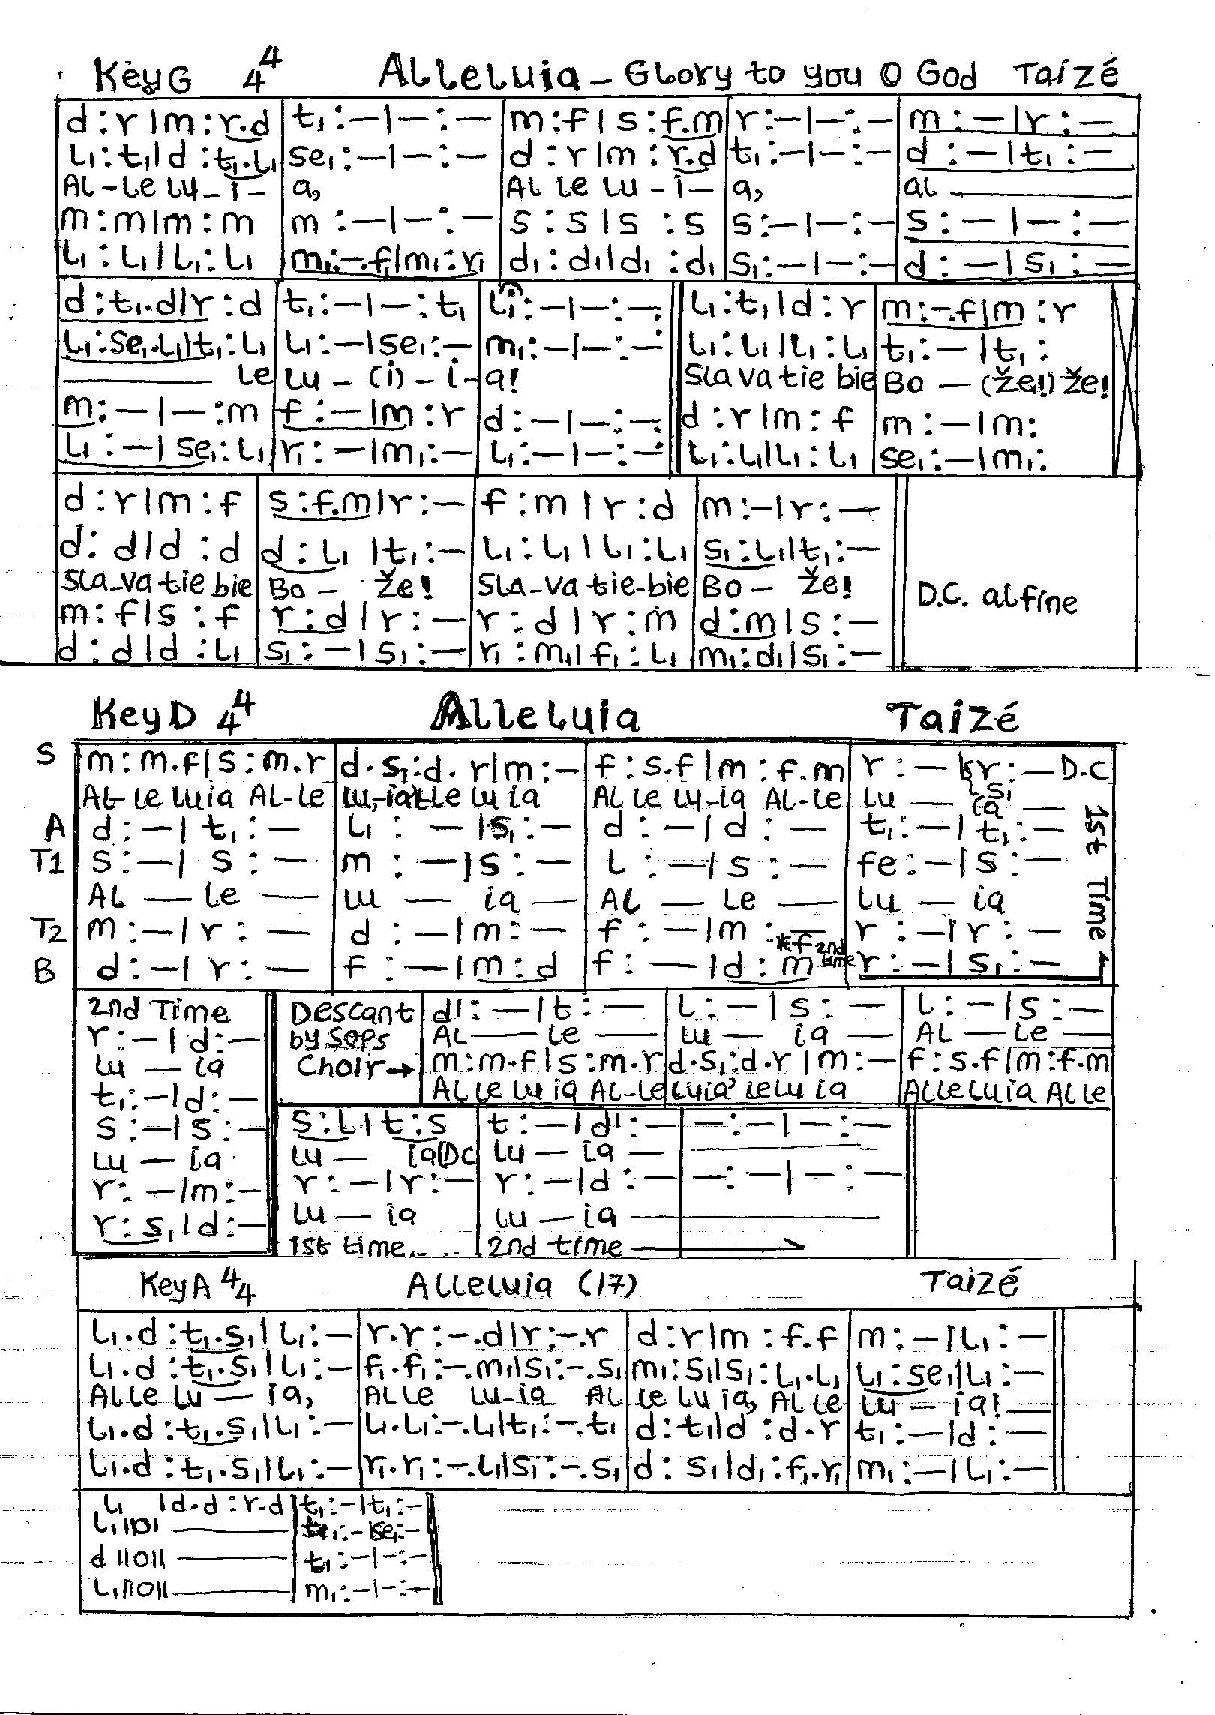 Key G 4/4 Alleluia – Glory to you O God Taizé
d :r |m :r.d | t₁ :–|– :– | m :f | s :f.m | r :–|– :– | m :– |r :–
l₁ :t₁|d :t₁.l₁ | se₁ :–|– :– | d :r |m :r.d | t₁ :–|– :– | d :– |t₁ :–
AL-Le Lu-i- a, AL Le Lu-i- a, aL
m :m |m :m | m :–|– :– | s :s |s :s | s :–|– :– | s :– |– :–
l₁ :l₁ |l₁ :l₁ | m₁ :-.f₁|m₁ :r₁ | d₁ :d₁|d₁ :d₁ | s₁ :–|– :– | d :– |s₁ :–
d :t₁.d|r :d | t₁ :–|– :t₁ | l₁ :–|– :– || l₁ :t₁|d :r | m :-.f|m :r
l₁ :se₁.l₁|t₁ :l₁ | l₁ :–|se₁ :– | m₁ :–|– :– || l₁ :l₁|l₁ :l₁ | t₁ :– |t₁ :
Le Lu – (i) – i- a! Sla va tie bie Bo – (že!) že!
m :–|– :m | f :– |m :r | d :–|– :– || d :r |m :f | m :– |m :
l₁ :–|se₁ :l₁ | r₁ :– |m₁ :– | l₁ :–|– :– || l₁ :l₁|l₁ :l₁ | se₁ :–|m₁ :
d :r |m :f | s :f.m|r :– | f :m |r :d | m :–|r :– ||
d :d |d :d | d :l₁ |t₁ :– | l₁ :l₁ |l₁ :l₁ | s₁ :l₁|t₁ :– ||
Sla-va tie bie Bo – Že! Sla-va tie-bie Bo – Že! D.C. al fine
m :f |s :f | r :d |r :– | r :d |r :m | d :m |s :– ||
d :d |d :l₁ | s₁ :– |s₁ :– | r₁ :m₁|f₁ :l₁ | m₁ :d₁|s₁ :– ||
Key D 4/4 Alleluia Taizé
S m :m.f|s :m.r | d.s₁ :d.r|m :– | f :s.f|m :f.m | r :– r :– D.C
AL-Le Luia AL-Le Lu-ia Le Lu ia AL Le Lu-ia AL-Le Lu — ia —
A d :–|t₁ :– | l₁ :– |s₁ :– | d :–|d :– | t₁ :–|t₁ :–
T1 s :–|s :– | m :–|s :– | l :–|s :– | fe :–|s :–
AL — Le — Lu — ia — AL — Le — Lu — ia
T2 m :–|r :– | d :–|m :– | f :–|m :– | r :–|r :–
*f 2nd time
B d :–|r :– | f :–|m :d | f :–|d :m | r :–|s₁ :–
1st Time
2nd Time
r :–|d :–
Lu — ia
t₁ :–|d :–
s :–|s :–
Lu — ia
r :–|m :–
r :s₁|d :–
Descant by Sops d' :–|t :– | l :–|s :– | l :–|s :–
AL — Le — Lu — ia — AL — Le —
Choir→ m :m.f|s :m.r | d.s₁ :d.r|m :– | f :s.f|m :f.m
AL Le Lu ia AL-Le Luia' Le Lu ia ALLeLuia AL Le
s :l |t :s | t :–|d' :– | – :–|– :–
Lu — ia (DC Lu — ia —
r :–|r :– | r :–|d :– | – :–|– :–
Lu — ia Lu — ia
1st time. 2nd time
Key A 4/4 Alleluia (17) Taizé
l₁.d :t₁.s₁|l₁ :– | r.r :-.d|r :-.r | d :r |m :f.f | m :–|l₁ :–
l₁.d :t₁.s₁|l₁ :– | f₁.f₁ :-.m₁|s₁ :-.s₁ | m₁ :s₁|s₁ :l₁.l₁ | l₁ :se₁|l₁ :–
AL Le Lu — ia, AL Le Lu-ia AL Le Lu ia, AL Le Lu — ia!
l₁.d :t₁.s₁|l₁ :– | l₁.l₁ :-.l₁|t₁ :-.t₁ | d :t₁|d :d.r | t₁ :–|d :–
l₁.d :t₁.s₁|l₁ :– | r₁.r₁ :-.l₁|s₁ :-.s₁ | d :s₁|d₁ :f₁.r₁ | m₁ :–|l₁ :–
l₁ |d.d :r.d | t₁ :–|t₁ :–
l₁ :–|se₁ :–
d t₁ :–|– :–
l₁ m₁ :–|– :–